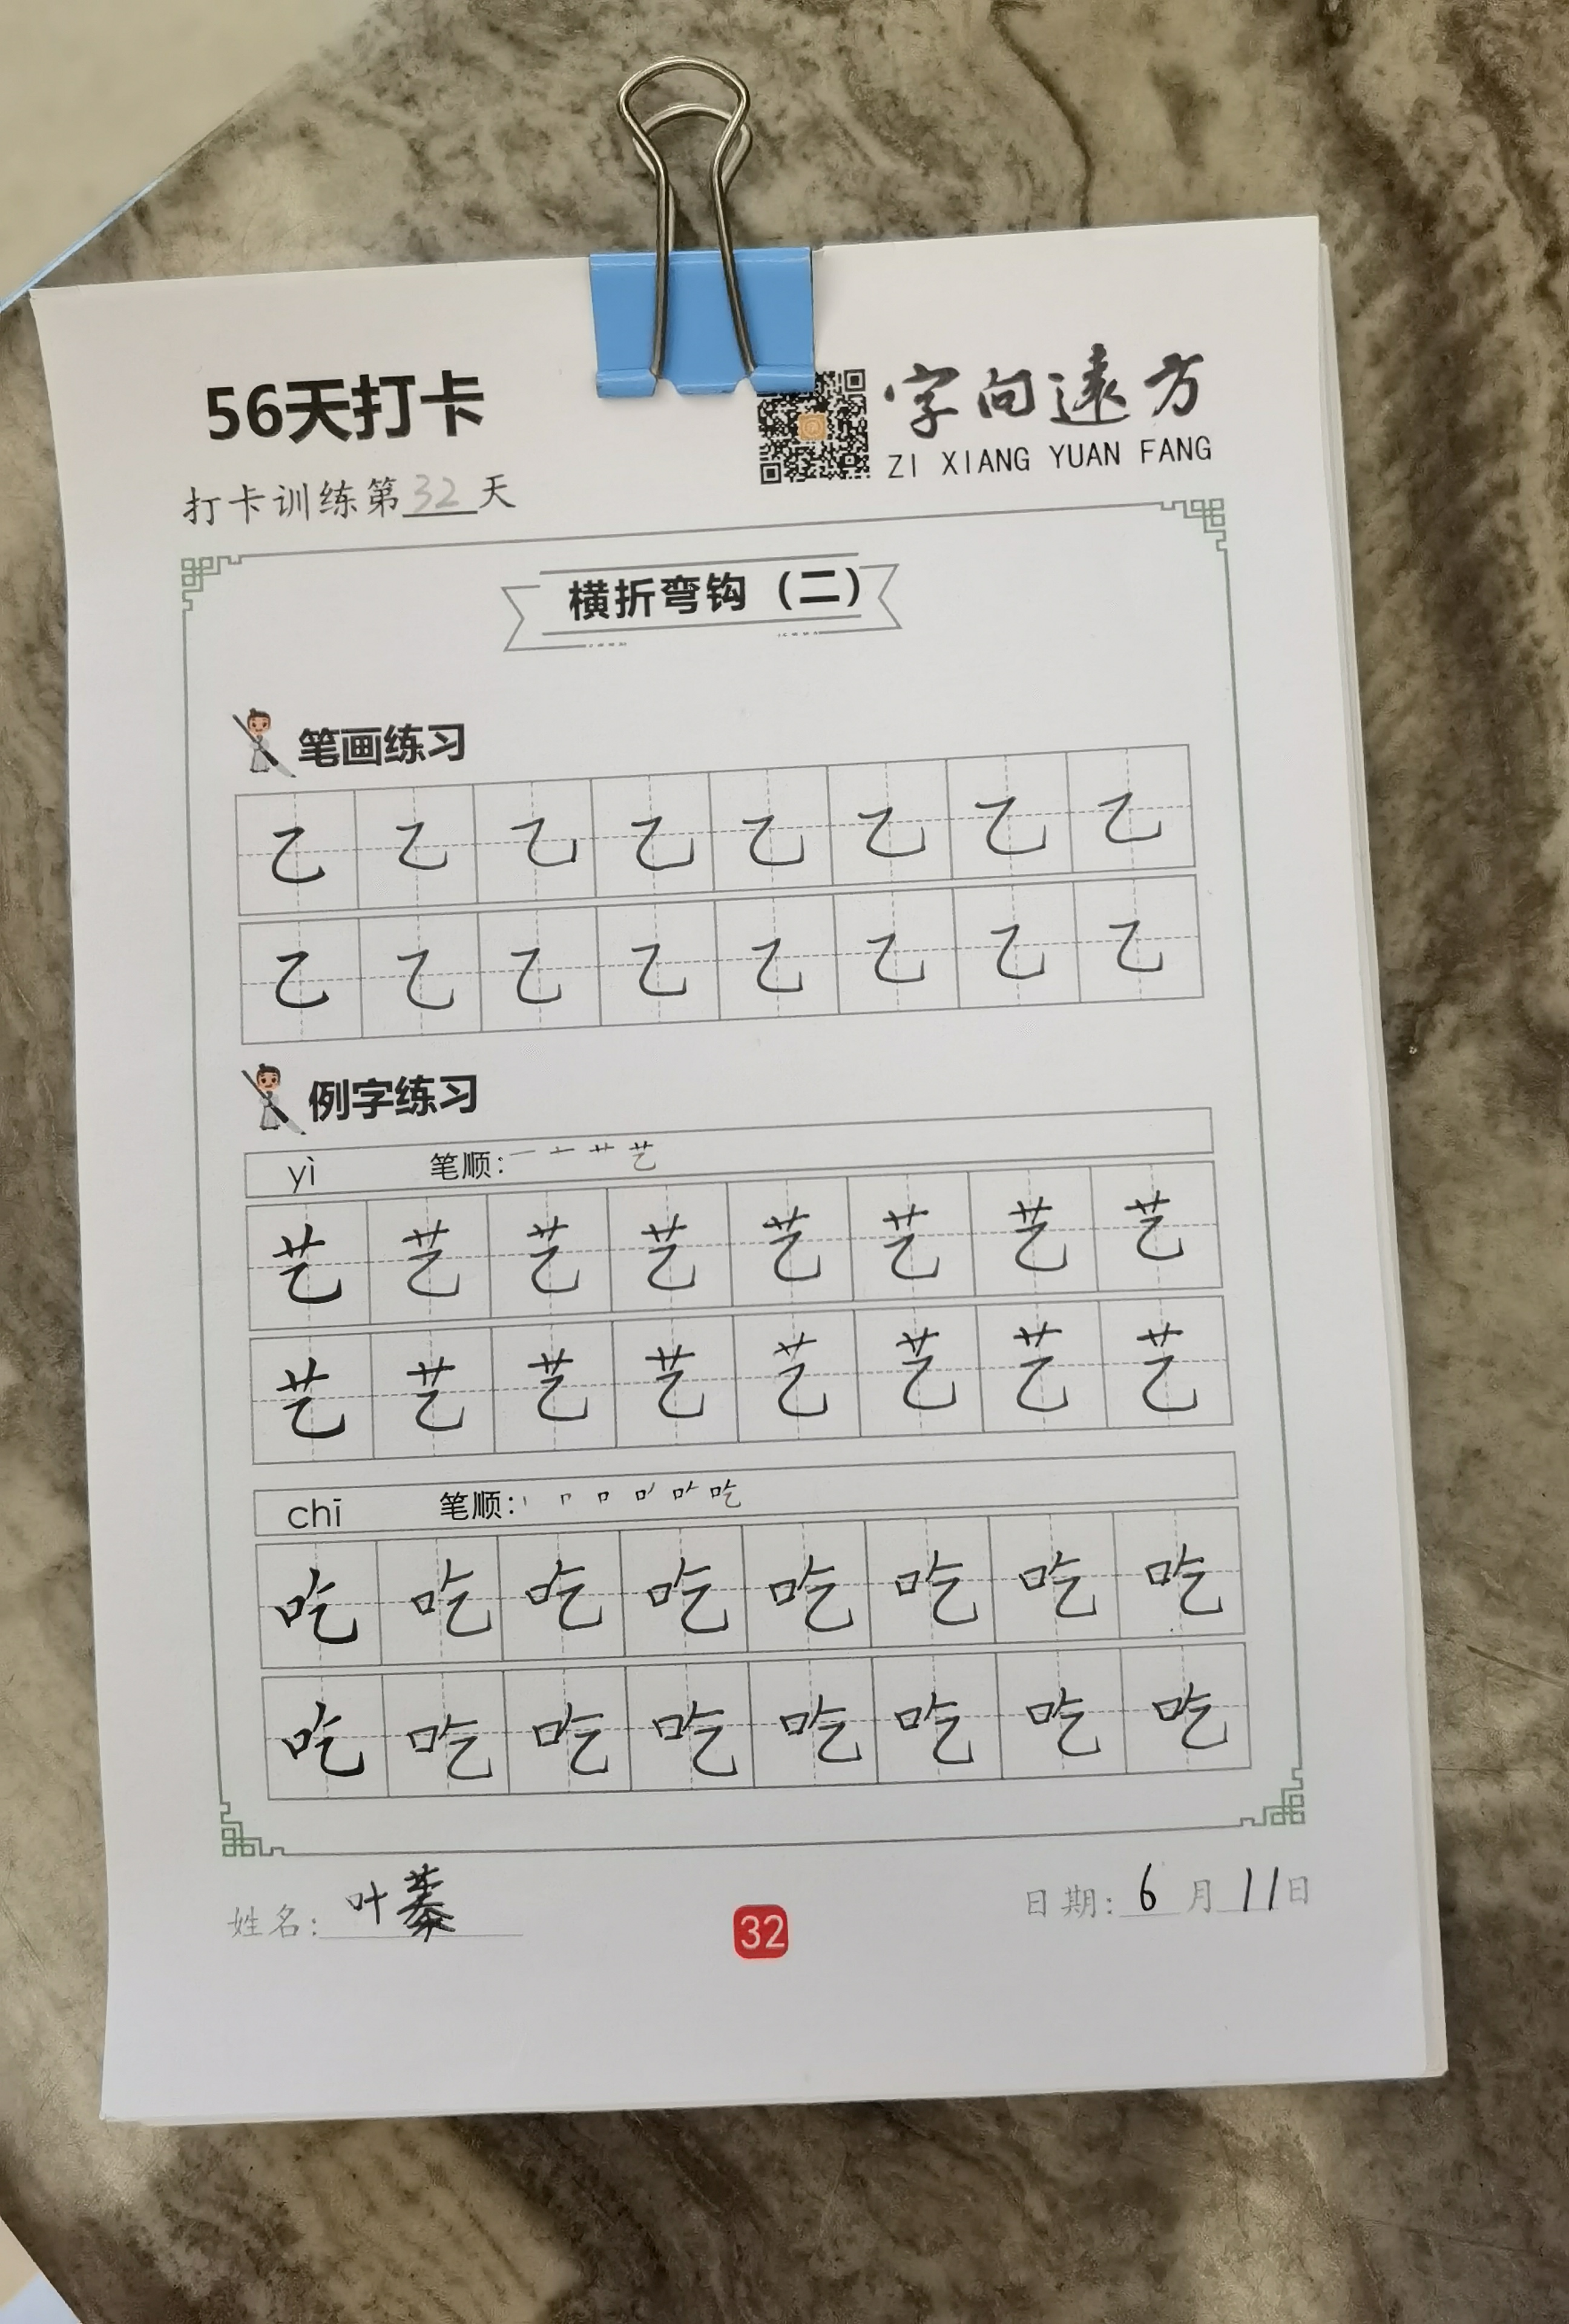 56天打卡
字向远方
ZI XIANG YUAN FANG
打卡训练第32天
横折弯钩（二）
笔画练习
乙 乙 乙 乙 乙 乙 乙 乙
乙 乙 乙 乙 乙 乙 乙 乙
例字练习
yì 笔顺：一 艹 艺
艺 艺 艺 艺 艺 艺 艺 艺
艺 艺 艺 艺 艺 艺 艺 艺
chī 笔顺：丨 口 吃
吃 吃 吃 吃 吃 吃 吃 吃
吃 吃 吃 吃 吃 吃 吃 吃
姓名：叶蓁
32
日期：6月11日